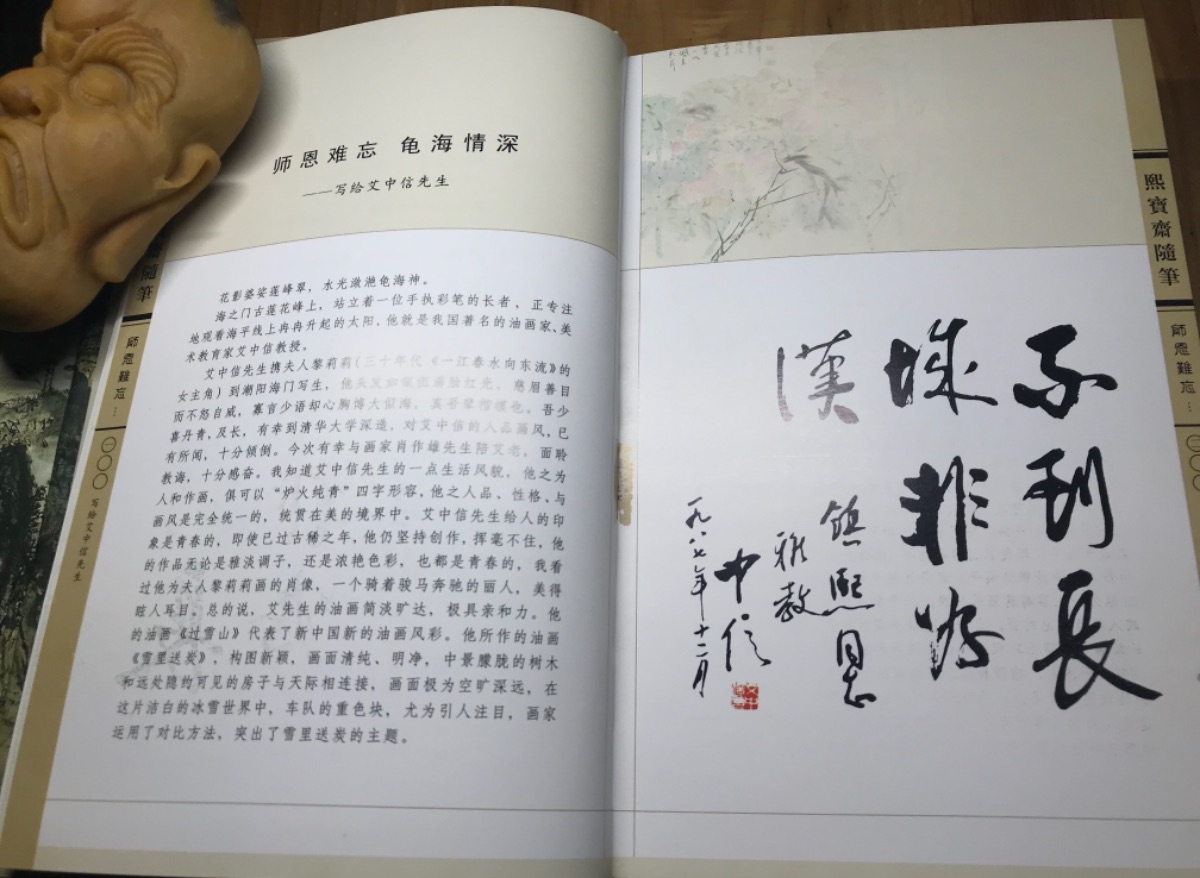 师恩难忘 龟海情深
——写给艾中信先生
花影婆娑莲峰翠，水光潋滟龟海神。
海之门古莲花峰上，站立着一位手执彩笔的长者，正专注
地观看海平线上冉冉升起的太阳，他就是我国著名的油画家、美
术教育家艾中信教授。
艾中信先生携夫人黎莉莉(三十年代《一江春水向东流》的
女主角)到潮阳海门写生，他头发如银但满脸红光，慈眉善目
而不怒自威，寡言少语却心胸博大似海，真吾辈楷模也。吾少
喜丹青，及长，有幸到清华大学深造，对艾中信的人品画风，已
有所闻，十分倾倒。今次有幸与画家肖作雄先生陪艾老，面聆
教诲，十分感奋。我知道艾中信先生的一点生活风貌，他之为
人和作画，俱可以“炉火纯青”四字形容，他之人品、性格、与
画风是完全统一的，统贯在美的境界中。艾中信先生给人的印
象是青春的，即使已过古稀之年，他仍坚持创作，挥毫不住，他
的作品无论是雅淡调子，还是浓艳色彩，也都是青春的，我看
过他为夫人黎莉莉画的肖像，一个骑着骏马奔驰的丽人，美得
眩人耳目。总的说，艾先生的油画简淡旷达，极具亲和力。他
的油画《过雪山》代表了新中国新的油画风彩。他所作的油画
《雪里送炭》，构图新颖，画面清纯、明净，中景朦胧的树木
和远处隐约可见的房子与天际相连接，画面极为空旷深远，在
这片洁白的冰雪世界中，车队的重色块，尤为引人注目，画家
运用了对比方法，突出了雪里送炭的主题。
齋隨筆
師恩難忘…
一〇〇
写给艾中信先生
不到長
城非好
漢
鎮熙同志
雅教
中信
一九八七年十二月
熙寶齋隨筆
師恩難忘…